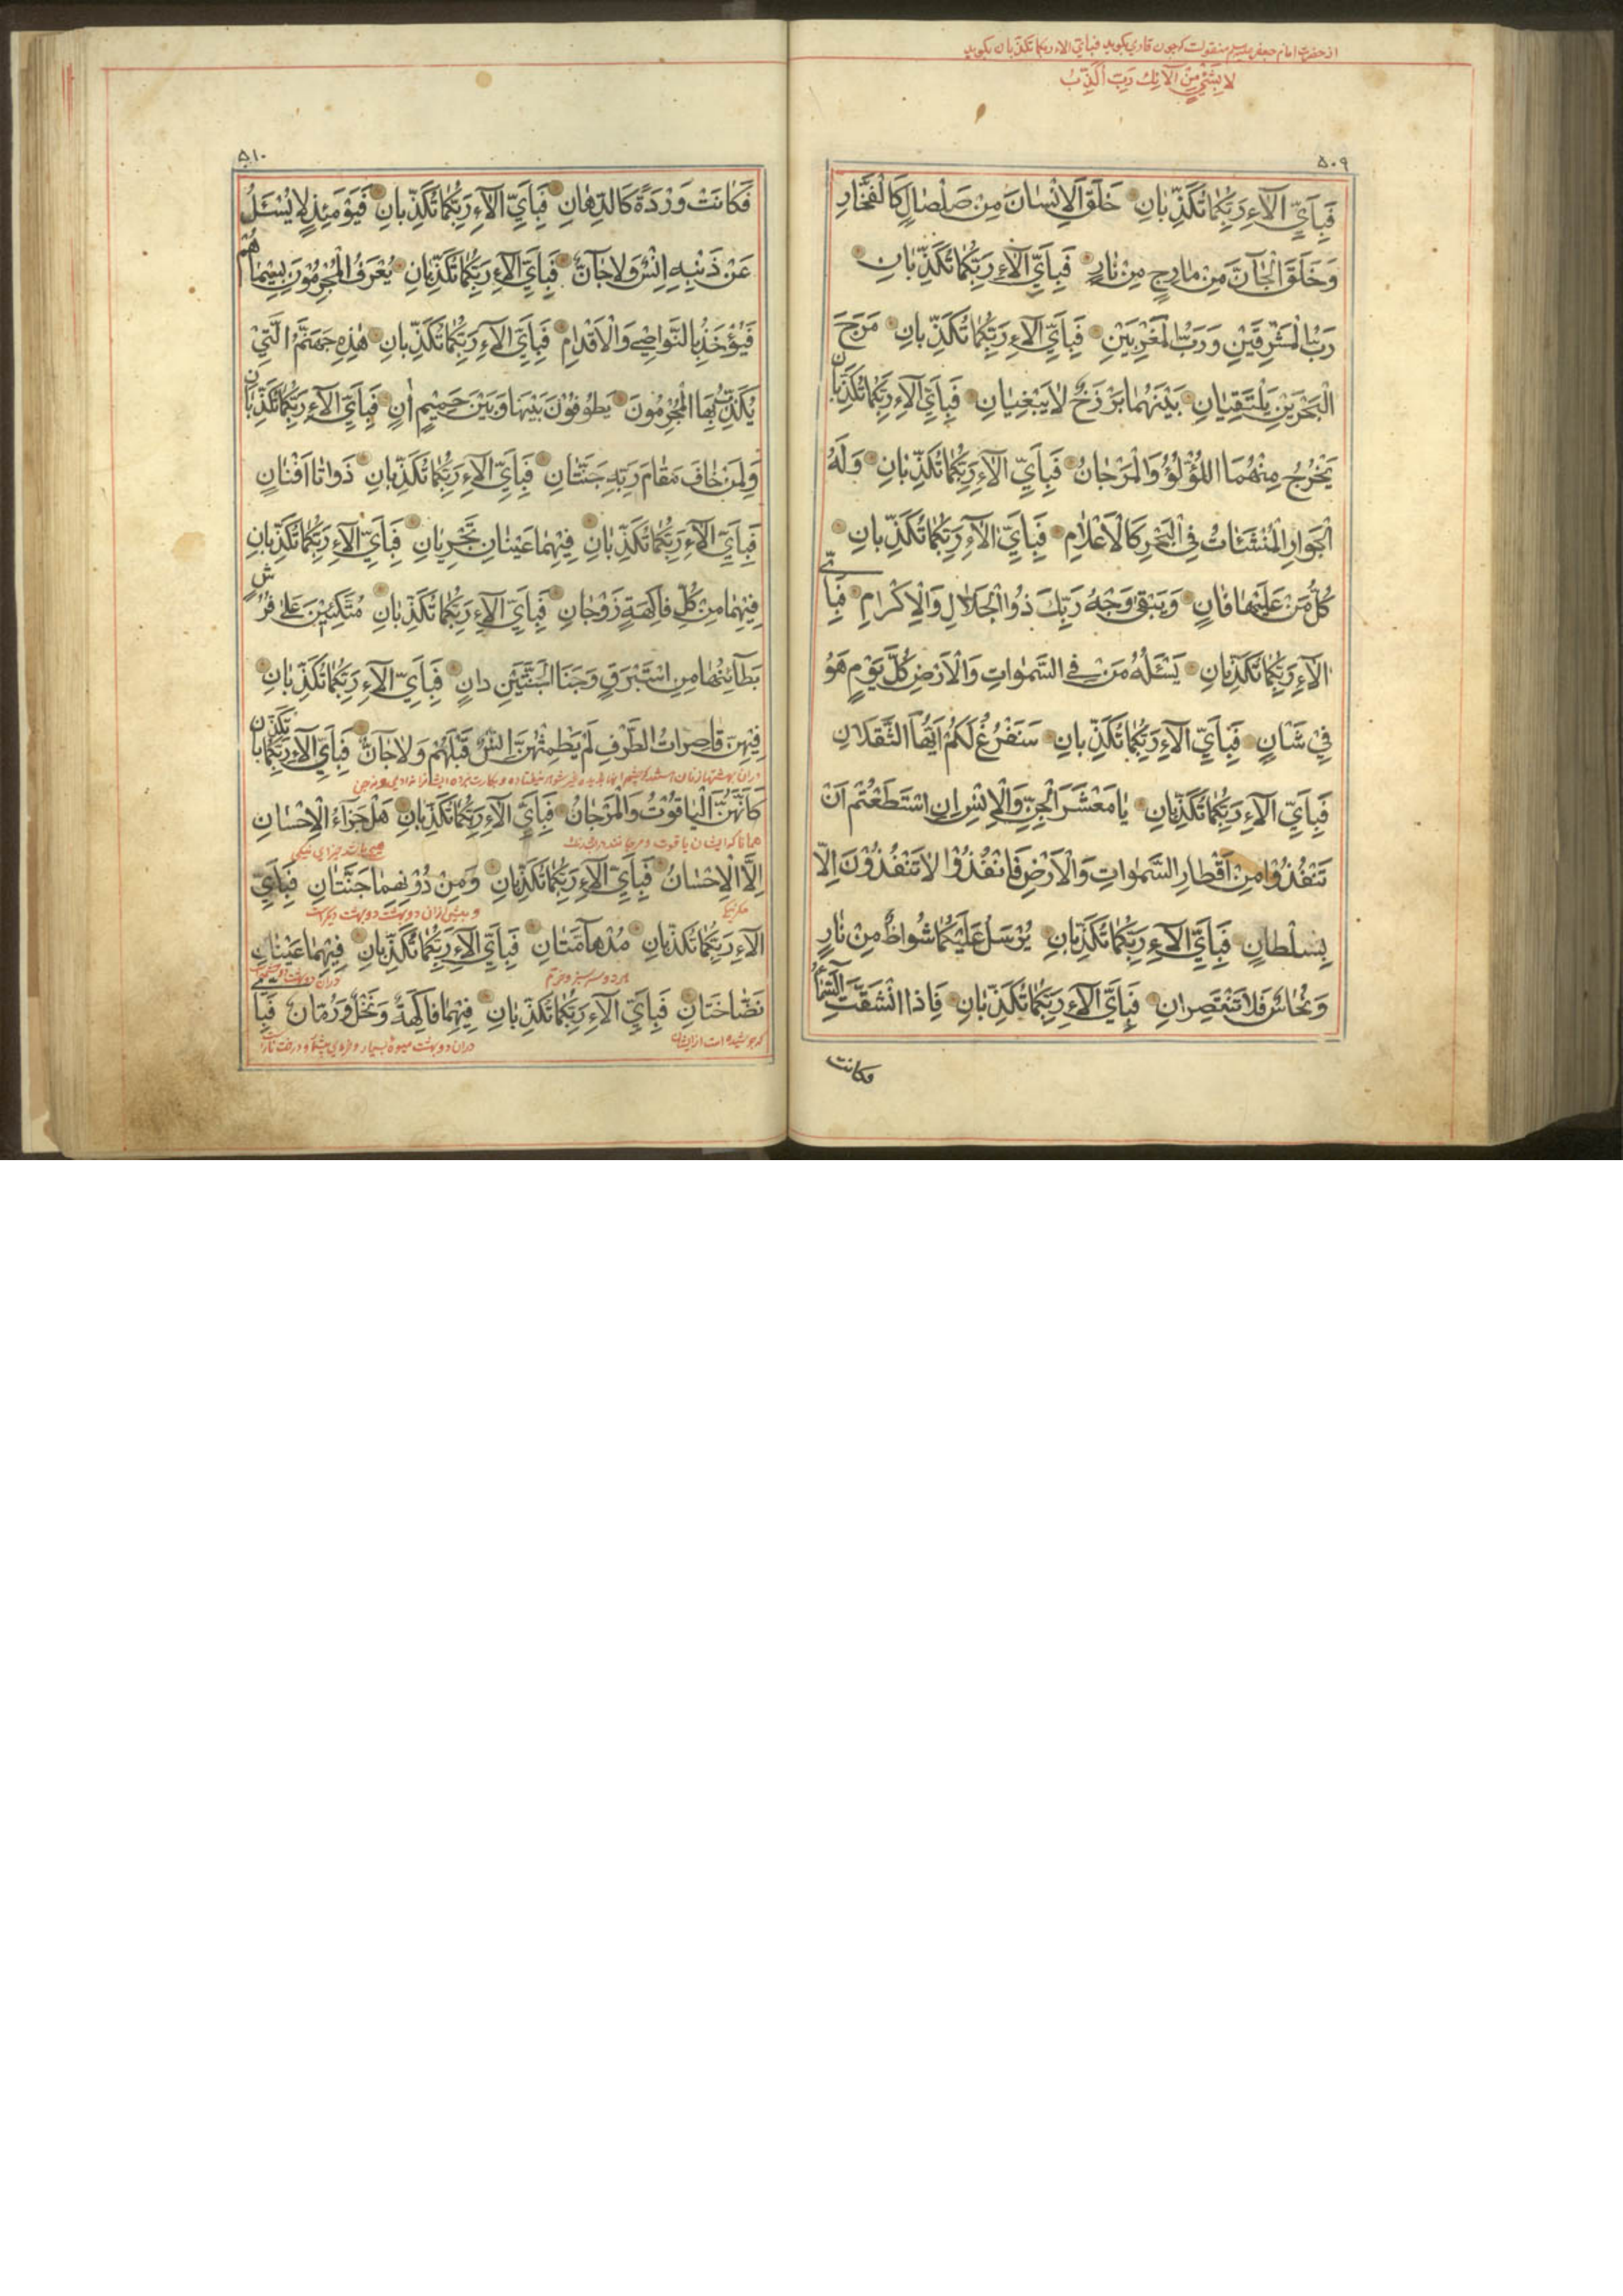 از حضرت امام جعفر منقولست که چون قاری بگوید فبای الاء ربکما تکذبان بگوید
لا بِشَيْءٍ مِنْ آلآئِكَ رَبِّ أُكَذِّبُ
۵۰۹
فَبِاَيِّ آلآءِ رَبِّكُمٰا تُكَذِّبٰانِ خَلَقَ الْاِنْسٰانَ مِنْ صَلْصٰالٍ كَالْفَخّٰارِ
وَخَلَقَ الْجٰآنَّ مِنْ مٰارِجٍ مِنْ نٰارٍ فَبِاَيِّ آلآءِ رَبِّكُمٰا تُكَذِّبٰانِ
رَبُّ الْمَشْرِقَيْنِ وَرَبُّ الْمَغْرِبَيْنِ فَبِاَيِّ آلآءِ رَبِّكُمٰا تُكَذِّبٰانِ مَرَجَ
الْبَحْرَيْنِ يَلْتَقِيٰانِ بَيْنَهُمٰا بَرْزَخٌ لٰا يَبْغِيٰانِ فَبِاَيِّ آلآءِ رَبِّكُمٰا تُكَذِّبٰانِ
يَخْرُجُ مِنْهُمَا اللُّؤْلُؤُ وَالْمَرْجٰانُ فَبِاَيِّ آلآءِ رَبِّكُمٰا تُكَذِّبٰانِ وَلَهُ
الْجَوٰارِ الْمُنْشَئٰاتُ فِي الْبَحْرِ كَالْاَعْلٰامِ فَبِاَيِّ آلآءِ رَبِّكُمٰا تُكَذِّبٰانِ
كُلُّ مَنْ عَلَيْهٰا فٰانٍ وَيَبْقٰى وَجْهُ رَبِّكَ ذُو الْجَلٰالِ وَالْاِكْرٰامِ فَبِاَيِّ
آلآءِ رَبِّكُمٰا تُكَذِّبٰانِ يَسْئَلُهُ مَنْ فِي السَّمٰوٰاتِ وَالْاَرْضِ كُلَّ يَوْمٍ هُوَ
فِيْ شَاْنٍ فَبِاَيِّ آلآءِ رَبِّكُمٰا تُكَذِّبٰانِ سَنَفْرُغُ لَكُمْ اَيُّهَا الثَّقَلٰانِ
فَبِاَيِّ آلآءِ رَبِّكُمٰا تُكَذِّبٰانِ يٰا مَعْشَرَ الْجِنِّ وَالْاِنْسِ اِنِ اسْتَطَعْتُمْ اَنْ
تَنْفُذُوْا مِنْ اَقْطٰارِ السَّمٰوٰاتِ وَالْاَرْضِ فَانْفُذُوْا لٰا تَنْفُذُوْنَ اِلّٰا
بِسُلْطٰانٍ فَبِاَيِّ آلآءِ رَبِّكُمٰا تُكَذِّبٰانِ يُرْسَلُ عَلَيْكُمٰا شُوٰاظٌ مِنْ نٰارٍ
وَنُحٰاسٌ فَلٰا تَنْتَصِرٰانِ فَبِاَيِّ آلآءِ رَبِّكُمٰا تُكَذِّبٰانِ فَاِذَا انْشَقَّتِ السَّمٰآءُ
فكانت
۵۱۰
فَكٰانَتْ وَرْدَةً كَالدِّهٰانِ فَبِاَيِّ آلآءِ رَبِّكُمٰا تُكَذِّبٰانِ فَيَوْمَئِذٍ لٰا يُسْئَلُ
عَنْ ذَنْبِهِ اِنْسٌ وَلٰا جٰآنٌّ فَبِاَيِّ آلآءِ رَبِّكُمٰا تُكَذِّبٰانِ يُعْرَفُ الْمُجْرِمُوْنَ بِسِيْمٰاهُمْ
فَيُؤْخَذُ بِالنَّوٰاصِيْ وَالْاَقْدٰامِ فَبِاَيِّ آلآءِ رَبِّكُمٰا تُكَذِّبٰانِ هٰذِهِ جَهَنَّمُ الَّتِيْ
يُكَذِّبُ بِهَا الْمُجْرِمُونَ يَطُوْفُوْنَ بَيْنَهٰا وَبَيْنَ حَمِيْمٍ اٰنٍ فَبِاَيِّ آلآءِ رَبِّكُمٰا تُكَذِّبٰانِ
وَلِمَنْ خٰافَ مَقٰامَ رَبِّهِ جَنَّتٰانِ فَبِاَيِّ آلآءِ رَبِّكُمٰا تُكَذِّبٰانِ ذَوٰاتٰا اَفْنٰانٍ
فَبِاَيِّ آلآءِ رَبِّكُمٰا تُكَذِّبٰانِ فِيْهِمٰا عَيْنٰانِ تَجْرِيٰانِ فَبِاَيِّ آلآءِ رَبِّكُمٰا تُكَذِّبٰانِ
فِيْهِمٰا مِنْ كُلِّ فٰاكِهَةٍ زَوْجٰانِ فَبِاَيِّ آلآءِ رَبِّكُمٰا تُكَذِّبٰانِ مُتَّكِئِيْنَ عَلٰى فُرُشٍ
بَطٰآئِنُهٰا مِنْ اِسْتَبْرَقٍ وَجَنَا الْجَنَّتَيْنِ دٰانٍ فَبِاَيِّ آلآءِ رَبِّكُمٰا تُكَذِّبٰانِ
فِيْهِنَّ قٰاصِرٰاتُ الطَّرْفِ لَمْ يَطْمِثْهُنَّ اِنْسٌ قَبْلَهُمْ وَلٰا جٰآنٌّ فَبِاَيِّ آلآءِ رَبِّكُمٰا تُكَذِّبٰانِ
كَاَنَّهُنَّ الْيٰاقُوْتُ وَالْمَرْجٰانُ فَبِاَيِّ آلآءِ رَبِّكُمٰا تُكَذِّبٰانِ هَلْ جَزٰآءُ الْاِحْسٰانِ
همانا که ایشان یاقوت و مرجانند در رنگ جزای نیکی
اِلَّا الْاِحْسٰانُ فَبِاَيِّ آلآءِ رَبِّكُمٰا تُكَذِّبٰانِ وَمِنْ دُوْنِهِمٰا جَنَّتٰانِ فَبِاَيِّ
مگر نیکی و پیش ازان دو بهشت دو بهشت دیگرست
آلآءِ رَبِّكُمٰا تُكَذِّبٰانِ مُدْهٰآمَّتٰانِ فَبِاَيِّ آلآءِ رَبِّكُمٰا تُكَذِّبٰانِ فِيْهِمٰا عَيْنٰانِ
هر دو سرسبز و خرم دران دو بهشت
نَضّٰاخَتٰانِ فَبِاَيِّ آلآءِ رَبِّكُمٰا تُكَذِّبٰانِ فِيْهِمٰا فٰاكِهَةٌ وَنَخْلٌ وَرُمّٰانٌ فَبِاَيِّ
دران دو بهشت میوهٔ بسیار و